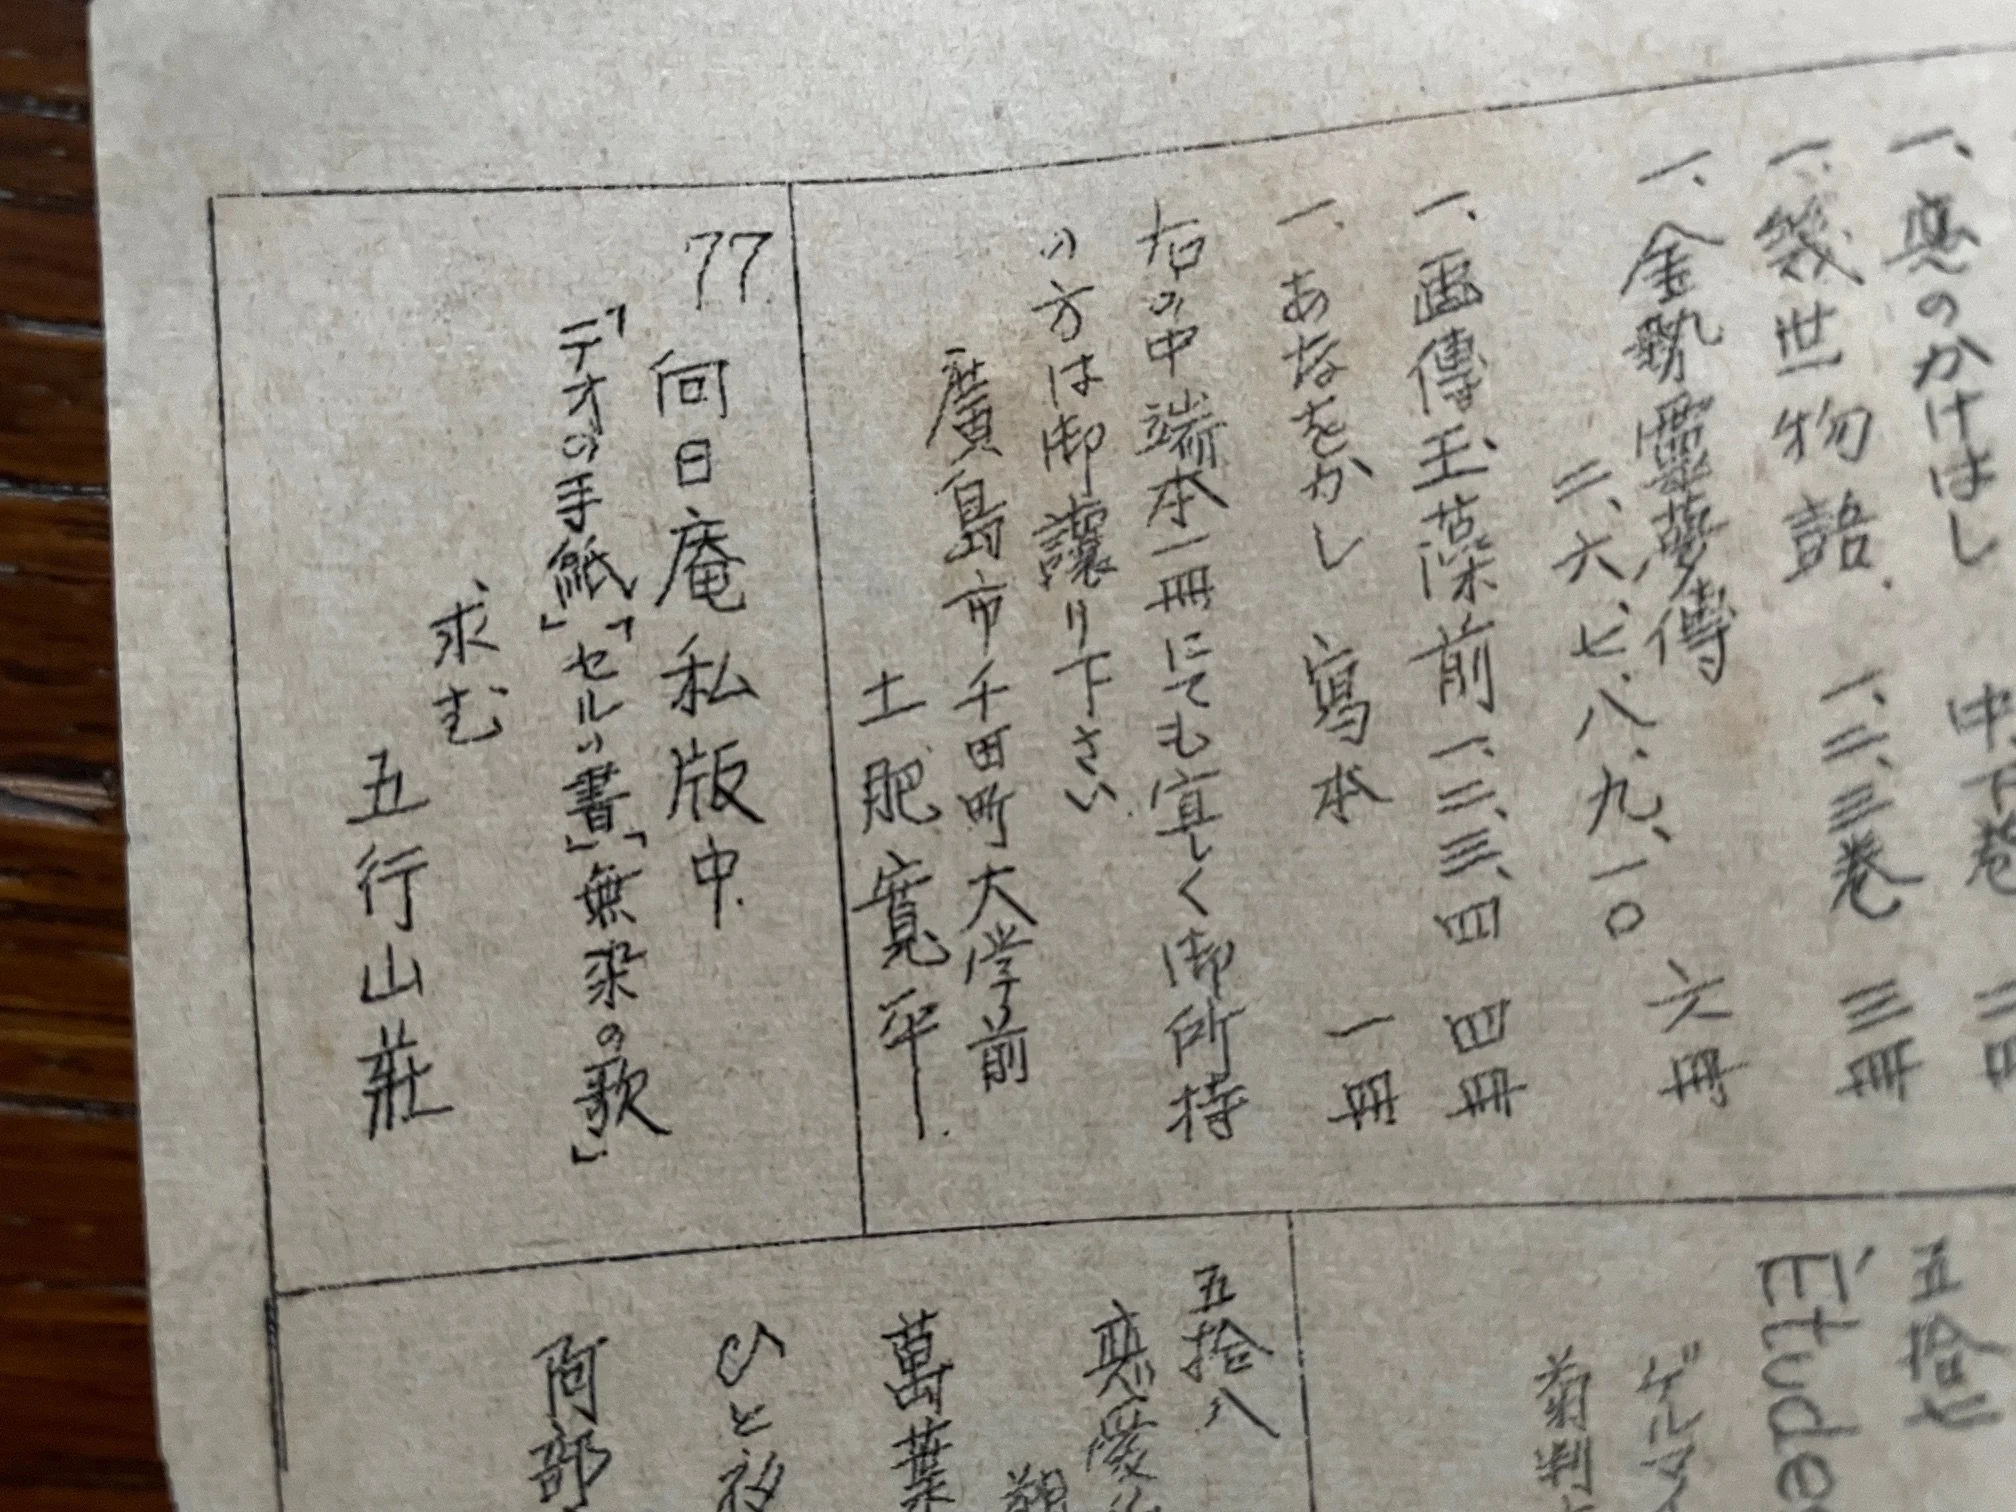 一、戀のかけはし　中、下巻　二冊
一、幾世物語．　一、二、三巻　三冊
一、金勢靈夢傳
二、六、七、八、九、一〇　六冊
一、画傳玉藻前　一、二、三、四　四冊
一、あなをかし　寫本　一冊
右の中端本一冊にても宜しく御所持
の方は御譲り下さい
廣島市千田町大学前
土肥寛平
77　向日庵私版中．
「テオの手紙」「セルの書」「無染の歌」
求む
五行山荘
五拾七
Étude
ゲルマ
菊判
五拾八
戀愛
萬葉
ひと
阿部